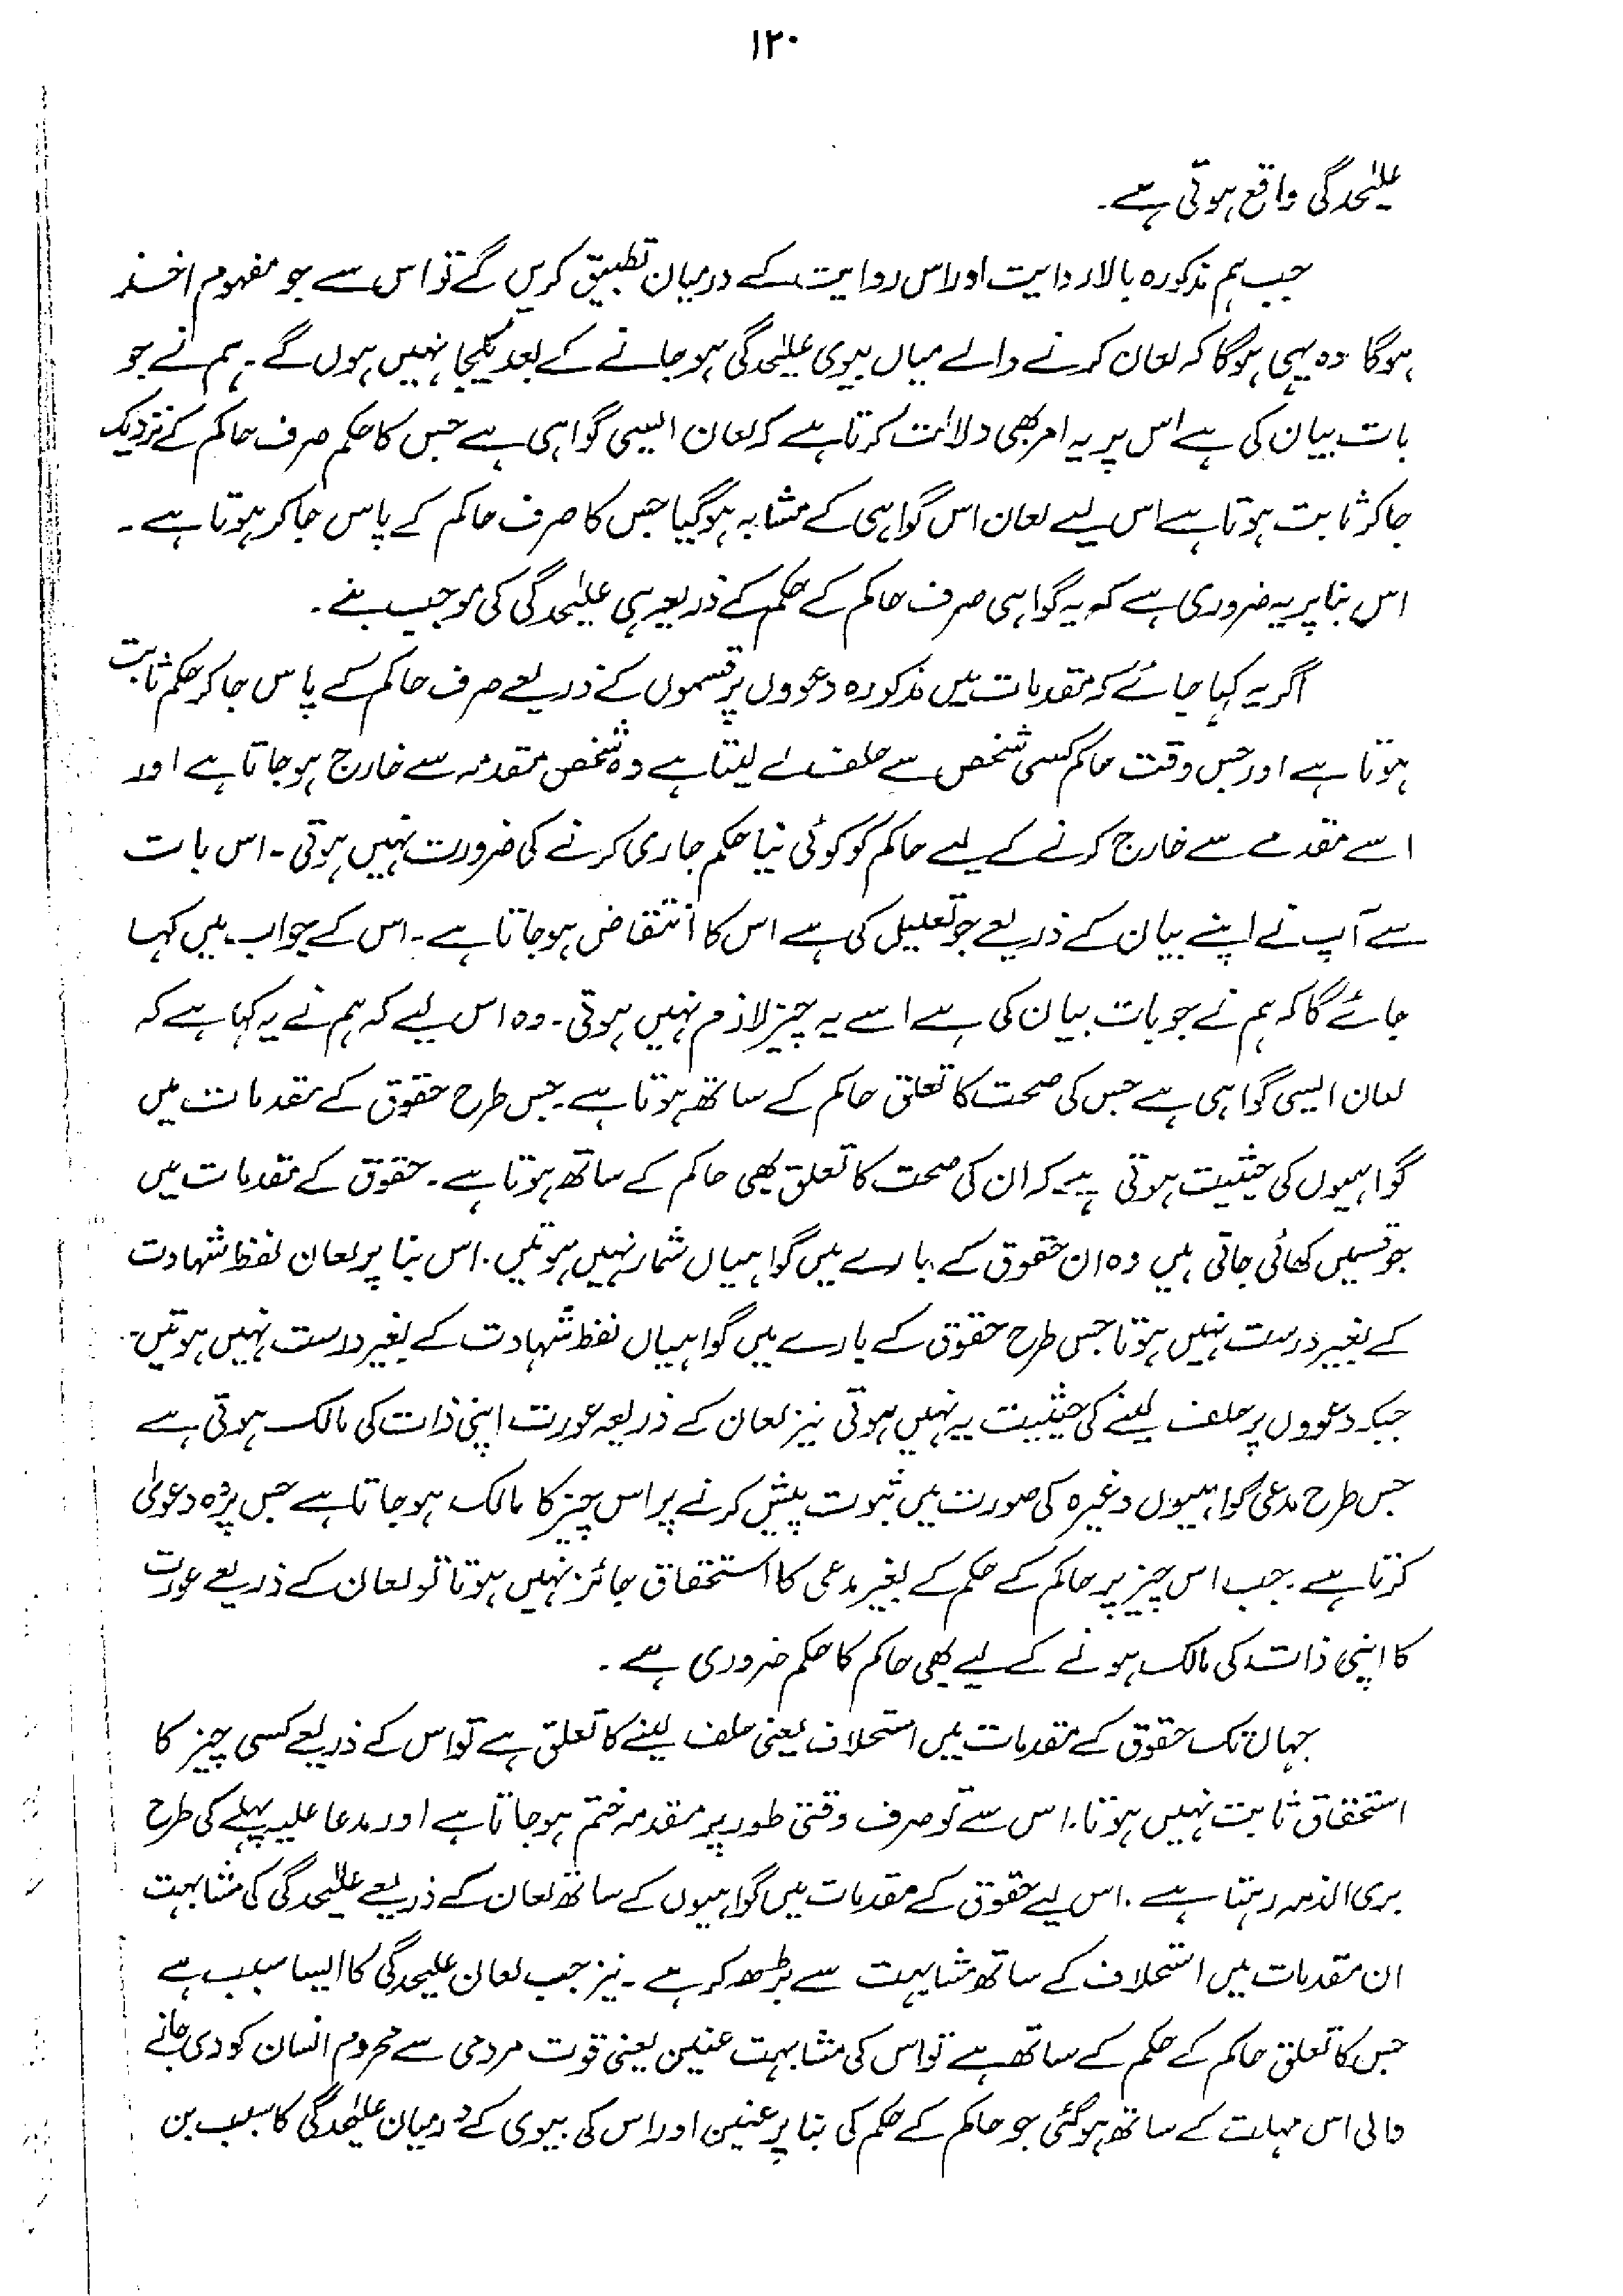 ۱۲۰
علیٰحدگی واقع ہوتی ہے۔
جب ہم مذکورہ بالا روایت اور اس روایت کے درمیان تطبیق کریں گے تو اس سے جو مفہوم اخذ
ہوگا وہ یہی ہوگا کہ لعان کرنے والے میاں بیوی علیٰحدگی ہو جانے کے بعد یکجا نہیں ہوں گے۔ ہم نے جو
بات بیان کی ہے اس پر یہ امر بھی دلالت کرتا ہے کہ لعان ایسی گواہی ہے جس کا حکم صرف حاکم کے نزدیک
جا کر ثابت ہوتا ہے اس لیے لعان اس گواہی کے مشابہ ہو گیا جس کا صرف حاکم کے پاس جا کر ہوتا ہے۔
اس بنا پر یہ ضروری ہے کہ یہ گواہی صرف حاکم کے حکم کے ذریعہ ہی علیٰحدگی کی موجب بنے۔
اگر یہ کہا جائے کہ مقدمات میں مذکورہ دعووں پر قسموں کے ذریعے صرف حاکم کے پاس جا کر حکم ثابت
ہوتا ہے اور جس وقت حاکم کسی شخص سے حلف لے لیتا ہے وہ شخص مقدمہ سے خارج ہو جاتا ہے اور
اسے مقدمے سے خارج کرنے کے لیے حاکم کو کوئی نیا حکم جاری کرنے کی ضرورت نہیں ہوتی۔ اس بات
سے آپ نے اپنے بیان کے ذریعے جو تعلیل کی ہے اس کا انتقاض ہو جاتا ہے۔ اس کے جواب میں کہا
جائے گا کہ ہم نے جو بات بیان کی ہے اسے یہ چیز لازم نہیں ہوتی۔ وہ اس لیے کہ ہم نے یہ کہا ہے کہ
لعان ایسی گواہی ہے جس کی صحت کا تعلق حاکم کے ساتھ ہوتا ہے۔ جس طرح حقوق کے مقدمات میں
گواہیوں کی حیثیت ہوتی ہے کہ ان کی صحت کا تعلق بھی حاکم کے ساتھ ہوتا ہے۔ حقوق کے مقدمات میں
جو قسمیں کھائی جاتی ہیں وہ ان حقوق کے بارے میں گواہیاں شمار نہیں ہوتیں۔ اس بنا پر لعان لفظ شہادت
کے بغیر درست نہیں ہوتا جس طرح حقوق کے بارے میں گواہیاں لفظ شہادت کے بغیر درست نہیں ہوتیں۔
جبکہ دعووں پر حلف لینے کی حیثیت یہ نہیں ہوتی نیز لعان کے ذریعہ عورت اپنی ذات کی مالک ہوتی ہے
جس طرح مدعی گواہیوں وغیرہ کی صورت میں ثبوت پیش کرنے پر اس چیز کا مالک ہو جاتا ہے جس پر وہ دعویٰ
کرتا ہے۔ جب اس چیز پر حاکم کے حکم کے بغیر مدعی کا استحقاق جائز نہیں ہوتا تو لعان کے ذریعے عورت
کا اپنی ذات کی مالک ہونے کے لیے بھی حاکم کا حکم ضروری ہے۔
جہاں تک حقوق کے مقدمات میں استحلاف یعنی حلف لینے کا تعلق ہے تو اس کے ذریعے کسی چیز کا
استحقاق ثابت نہیں ہوتا۔ اس سے تو صرف وقتی طور پر مقدمہ ختم ہو جاتا ہے اور مدعا علیہ پہلے کی طرح
بری الذمہ رہتا ہے۔ اس لیے حقوق کے مقدمات میں گواہیوں کے ساتھ لعان کے ذریعے علیٰحدگی کی مشابہت
ان مقدمات میں استحلاف کے ساتھ مشابہت سے بڑھ کر ہے۔ نیز جب لعان علیحدگی کا ایسا سبب ہے
جس کا تعلق حاکم کے حکم کے ساتھ ہے تو اس کی مشابہت عنین یعنی قوت مردمی سے محروم انسان کو دی جانے
والی اس مہلت کے ساتھ ہو گئی جو حاکم کے حکم کی بنا پر عنین اور اس کی بیوی کے درمیان علیٰحدگی کا سبب بن